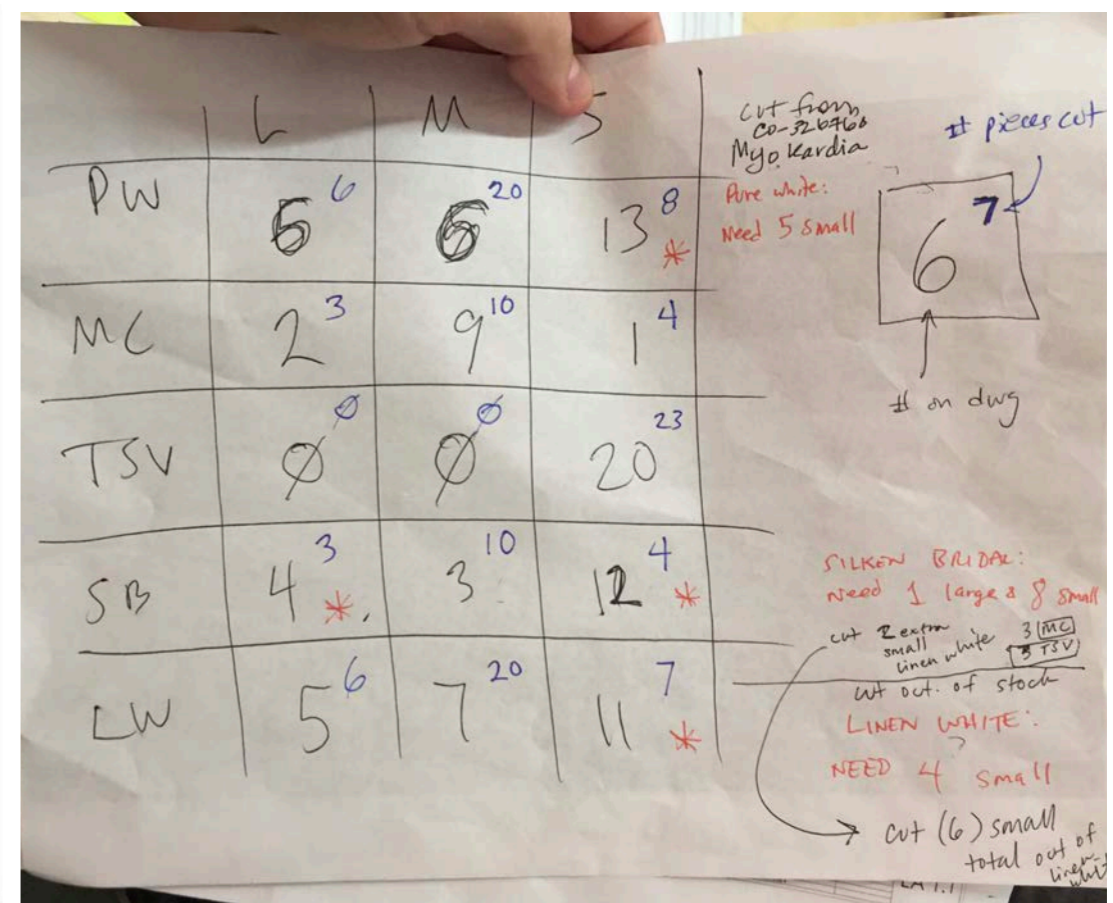 L M S
PW 5 6 6 20 13 8 *
MC 2 3 9 10 1 4
TSV Ø Ø Ø Ø 20 23
SB 4 3 * 3 10 12 4 *
LW 5 6 7 20 11 7 *
cut from
CO-326760
Myo Kardia
Pure white:
Need 5 small
# pieces cut
7
6
# on dwg
SILKEN BRIDAL:
Need 1 large & 8 small
cut 2 extra
small
linen white
3 MC
3 TSV
cut out of stock
LINEN WHITE:
?
NEED 4 small
cut (6) small
total out of
linen
white
LA 1.1